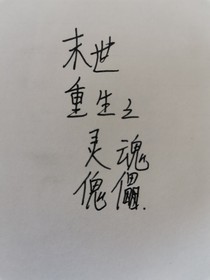 末世
重生之
灵魂
傀儡.